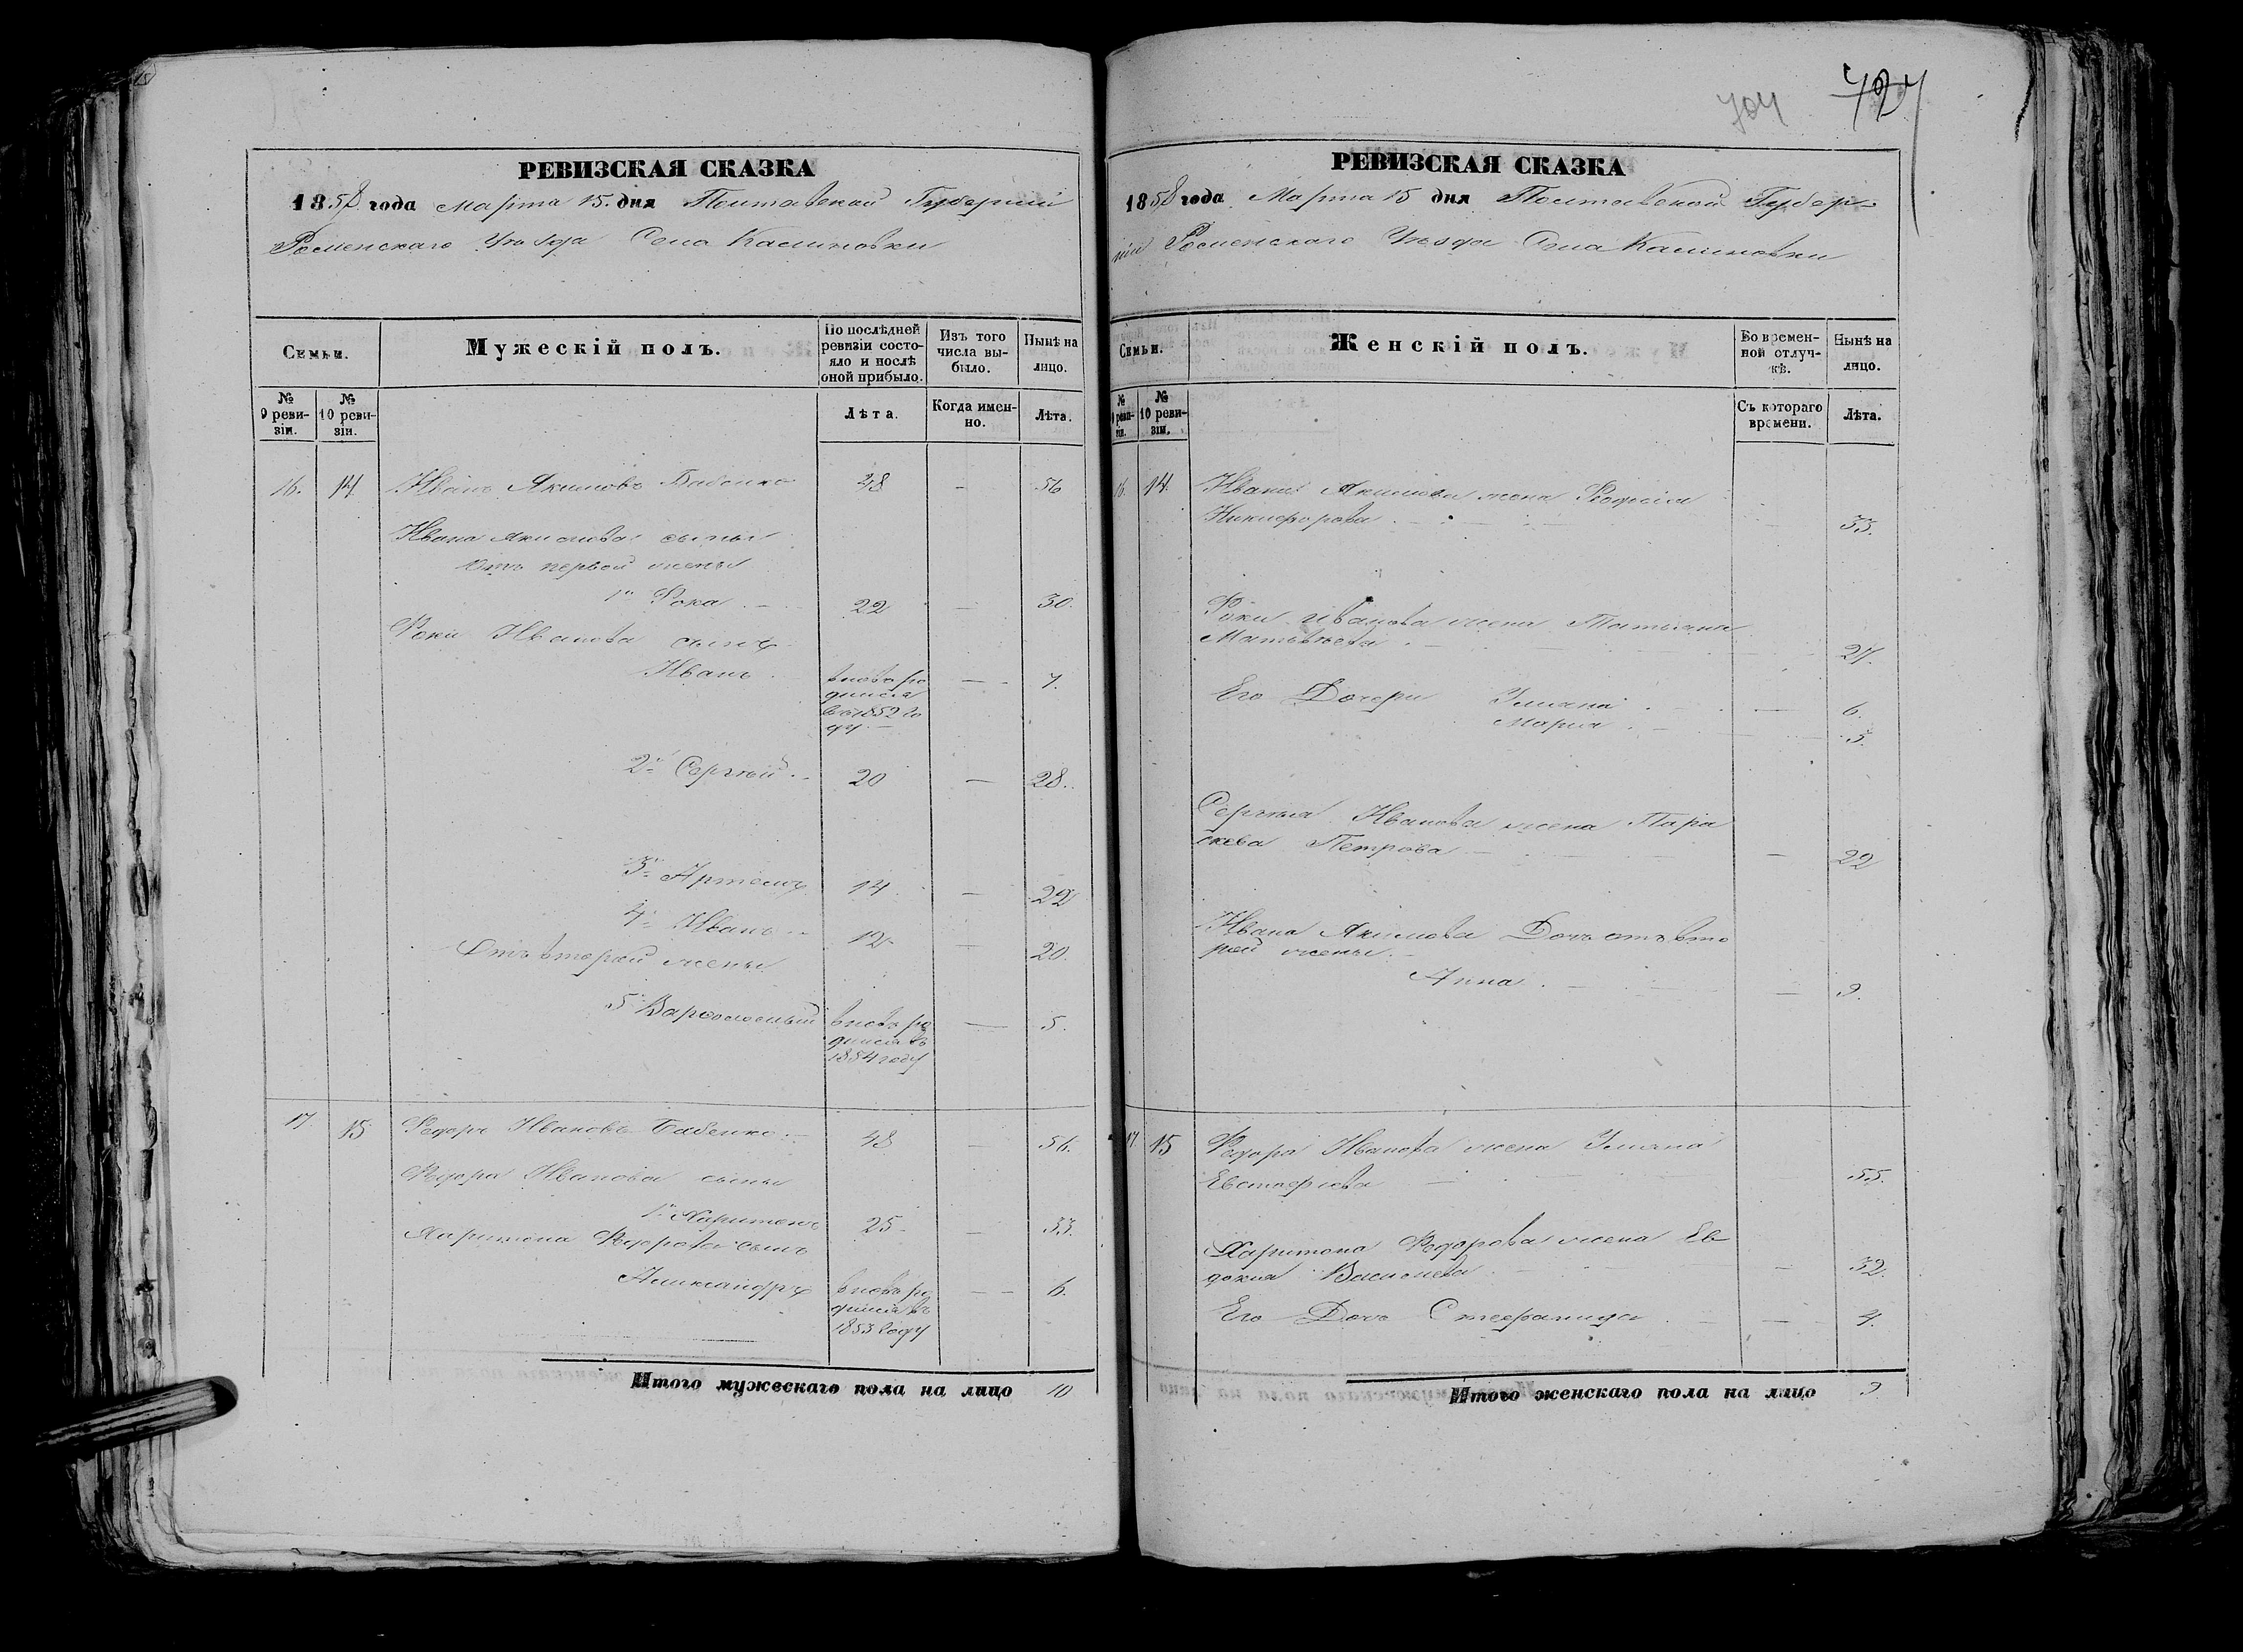 704 727
РЕВИЗСКАЯ СКАЗКА
1858 года Марта 15. дня Полтавской Губерніи
Роменскаго Уѣзда Села Калиновки
Семьи.
Мужескій полъ.
По послѣдней ревизіи состояло и послѣ оной прибыло.
Изъ того числа выбыло.
Нынѣ на лицо.
№ 9 ревизіи.
№ 10 ревизіи.
Лѣта.
Когда именно.
Лѣта.
16. 14 Иванъ Якимовъ Бабенко 48 - 56
Ивана Якимова сыны
Отъ первой жены
1й Фока 22 — 30.
Фоки Иванова сынъ
Иванъ вновь ро — 7.
дился
въ 1852 го
ду
2й Сергѣй 20 — 28.
3й Артемъ 14 — 22
4й Иванъ 12 — 20.
Отъ второй жены
5й Варфоломей вновь ро — 5.
дился въ
1854 году
17. 15 Федоръ Ивановъ Бабенко 48 — 56.
Федора Иванова сыны
1й Харитонъ 25 — 33.
Харитона Федорова сынъ
Александръ вновь ро — 6.
дился въ
1853 году
Итого мужескаго пола на лицо 10
РЕВИЗСКАЯ СКАЗКА
1858 года Марта 15 дня Полтавской Губер-
ніи Роменскаго Уѣзда Села Калиновки
Семьи.
Женскій полъ.
Во временной отлучкѣ.
Нынѣ на лицо.
№ 9 ревизіи.
№ 10 ревизіи.
Съ котораго времени.
Лѣта.
16. 14. Ивана Якимова жена Феодосія
Никифорова 33.
Фоки Иванова жена Татьяна
Матвѣева 27.
Его Дочери Ульяна — 6.
Марія 3.
Сергѣя Иванова жена Пара
скева Петрова — 22
Ивана Якимова Дочь отъ вто
рой жены
Анна — 9.
17. 15 Федора Иванова жена Ульяна
Евстафіева 55.
Харитона Федорова жена Ев
докія Васильева — 32.
Его Дочь Стефанида — 4.
Итого женскаго пола на лицо 9